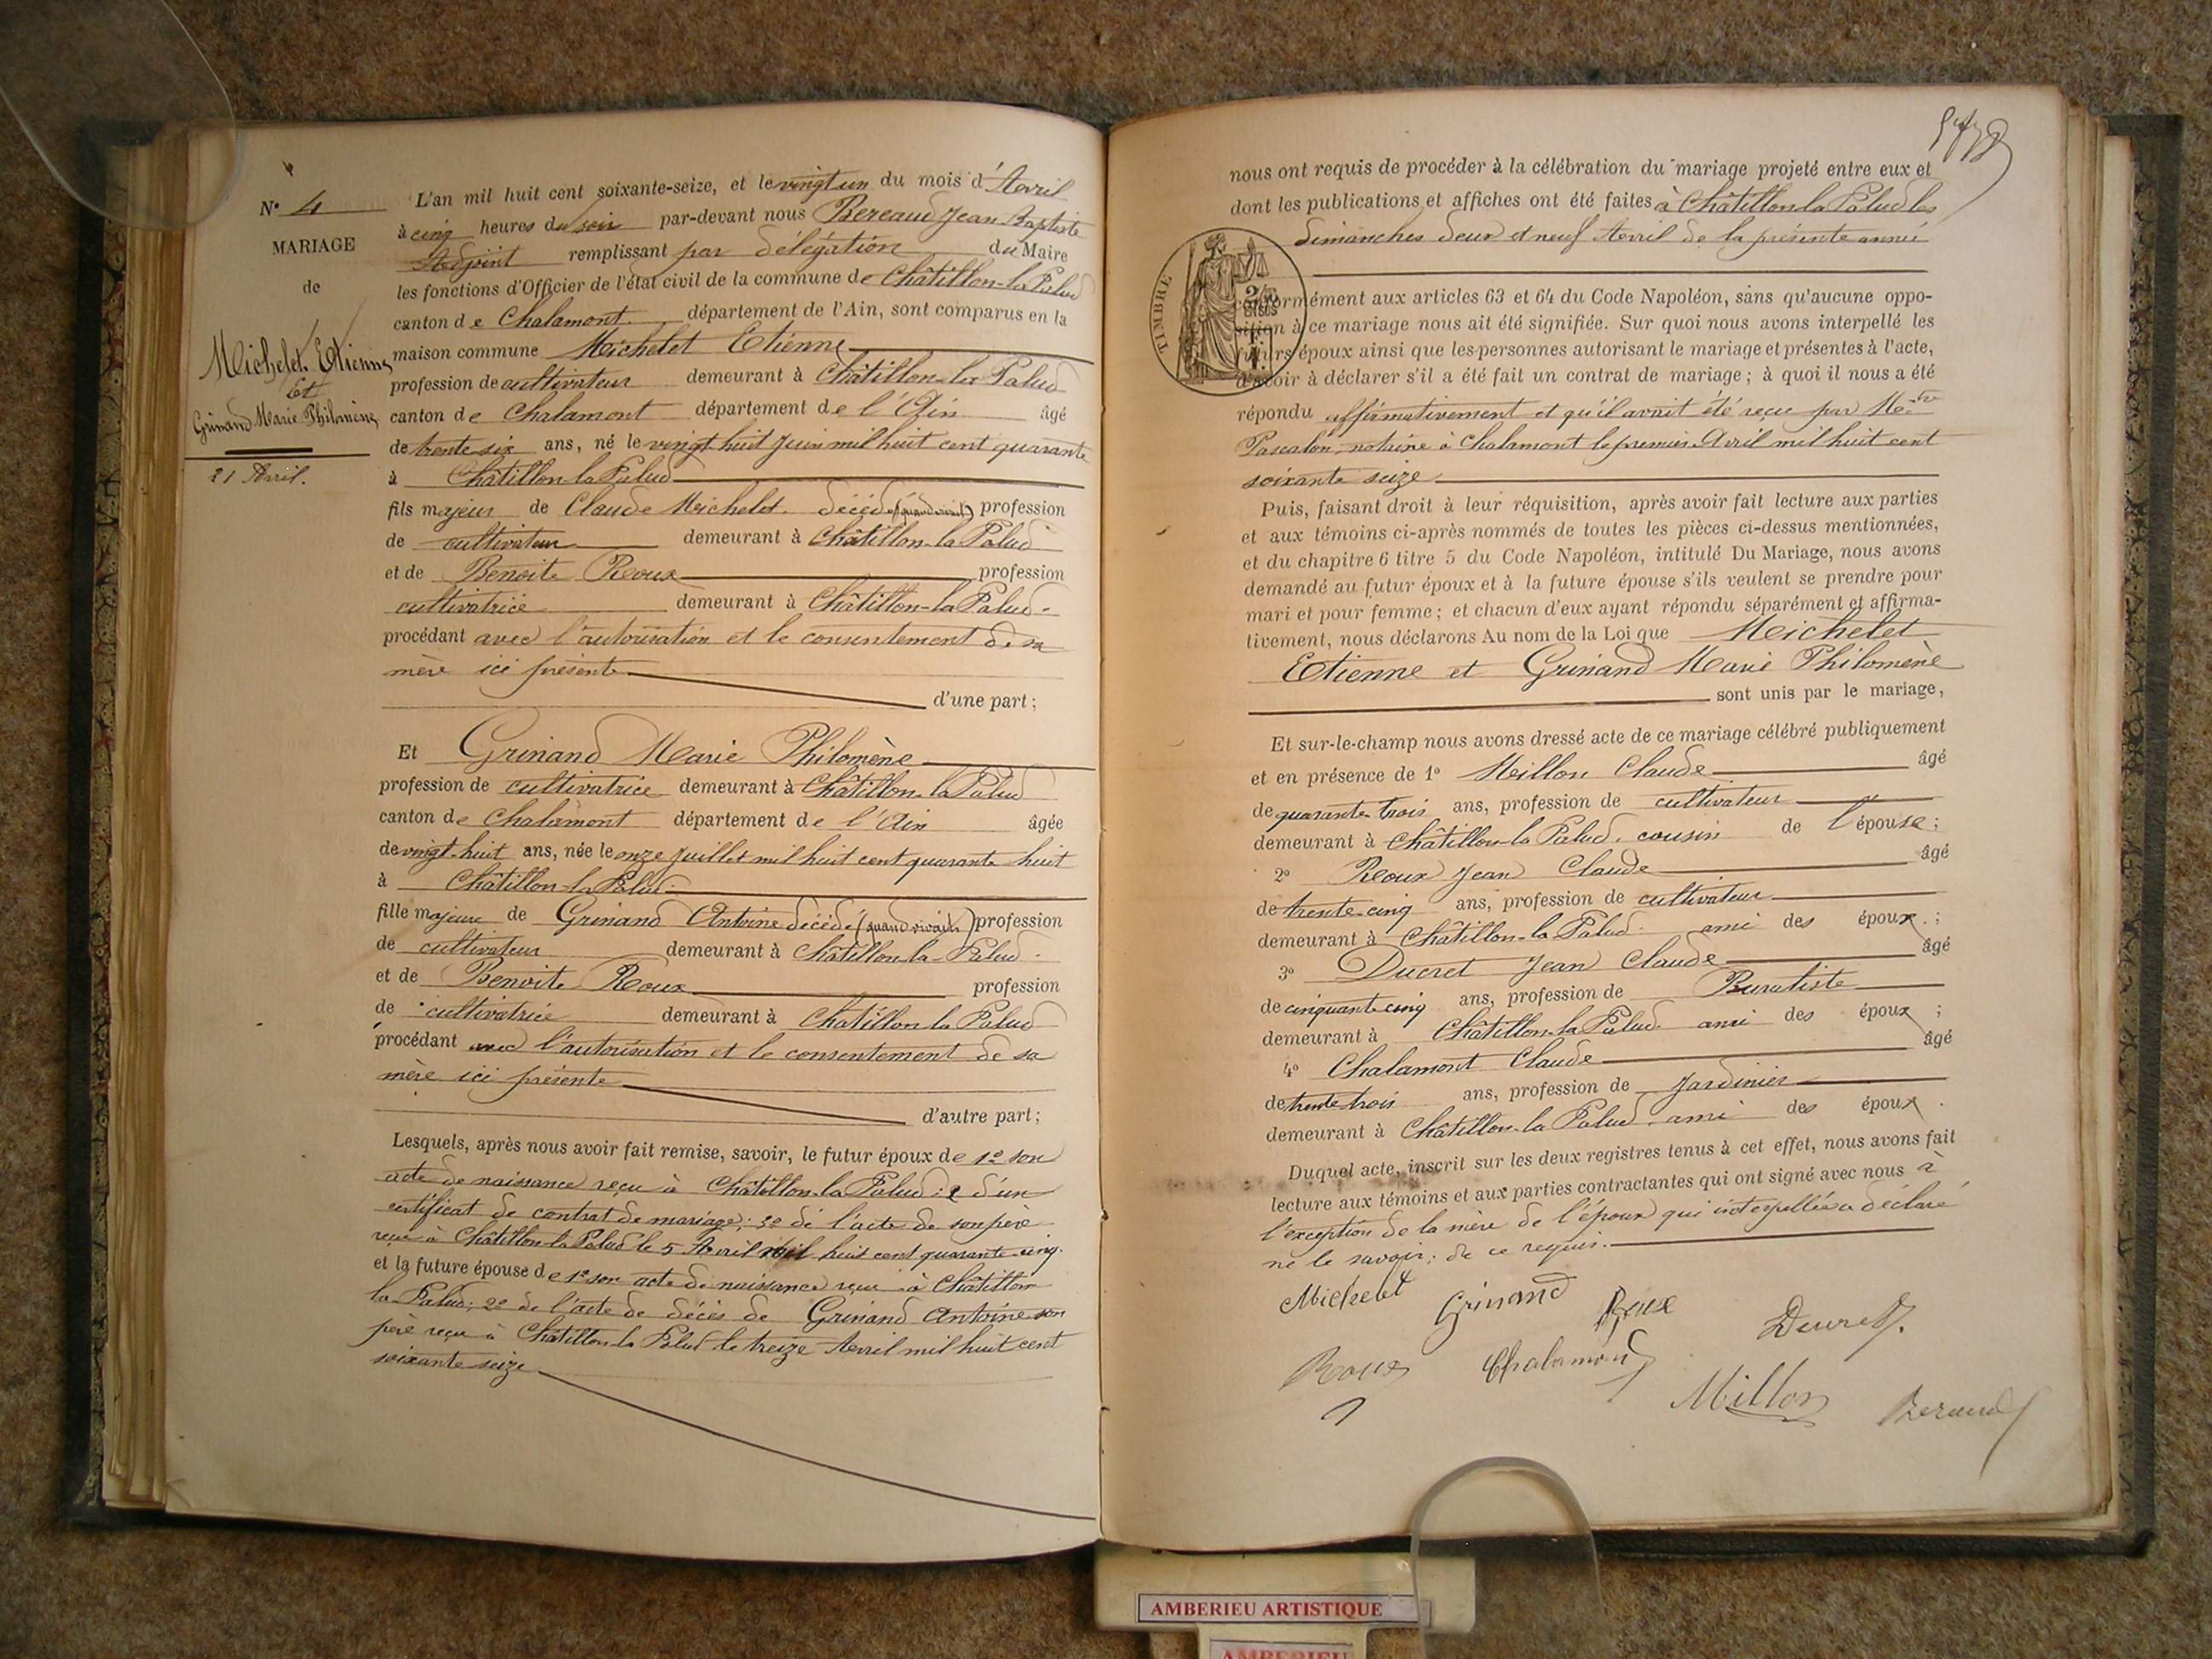 N° 4
MARIAGE
de
Michelet Etienne
Et
Grinand Marie Philomène
21 Avril.
L'an mil huit cent soixante-seize, et le vingt un du mois d'Avril
à cinq heures du soir par-devant nous Bereaud Jean Baptiste
Adjoint remplissant par délégation du Maire
les fonctions d'Officier de l'état civil de la commune de Châtillon-la-Palud
canton de Chalamont département de l'Ain, sont comparus en la
maison commune Michelet Etienne
profession de cultivateur demeurant à Châtillon-la Palud
canton de Chalamont département de l'Ain âgé
de trente six ans, né le vingt huit Juin mil huit cent quarante
à Châtillon-la Palud
fils majeur de Claude Michelet décédé (quand vivait) profession
de cultivateur demeurant à Châtillon-la Palud
et de Benoite Roux profession
cultivatrice demeurant à Châtillon-la Palud.
procédant avec l'autorisation et le consentement de sa
mère ici présente
d'une part;
Et Grinand Marie Philomène
profession de cultivatrice demeurant à Châtillon-la Palud
canton de Chalamont département de l'Ain âgée
de vingt-huit ans, née le onze Juillet mil huit cent quarante huit
à Châtillon-la Palud
fille majeure de Grinand Antoine décédé (quand vivait) profession
de cultivateur demeurant à Châtillon-la-Palud.
et de Benoite Roux profession
de cultivatrice demeurant à Châtillon la Palud
procédant avec l'autorisation et le consentement de sa
mère ici présente
d'autre part;
Lesquels, après nous avoir fait remise, savoir, le futur époux de 1° son
acte de naissance reçu à Châtillon-la Palud; 2 d'un
certificat de contrat de mariage; 3° de l'acte de son père
reçu à Châtillon-la Palud le 5 Avril mil huit cent quarante-cinq.
et la future épouse de 1° son acte de naissance reçu à Châtillon
la Palud; 2° de l'acte de décès de Grinand Antoine son
père reçu à Châtillon-la Palud le treize Avril mil huit cent
soixante seize
nous ont requis de procéder à la célébration du mariage projeté entre eux et
dont les publications et affiches ont été faites à Châtillon la Palud les
dimanches deux et neuf Avril de la présente année
TIMBRE
conformément aux articles 63 et 64 du Code Napoléon, sans qu'aucune oppo-
sition à ce mariage nous ait été signifiée. Sur quoi nous avons interpellé les
futurs époux ainsi que les personnes autorisant le mariage et présentes à l'acte,
d'avoir à déclarer s'il a été fait un contrat de mariage; à quoi il nous a été
répondu affirmativement et qu'il avait été reçu par Me
Pascalon, notaire à Chalamont le premier Avril mil huit cent
soixante seize
Puis, faisant droit à leur réquisition, après avoir fait lecture aux parties
et aux témoins ci-après nommés de toutes les pièces ci-dessus mentionnées,
et du chapitre 6 titre 5 du Code Napoléon, intitulé Du Mariage, nous avons
demandé au futur époux et à la future épouse s'ils veulent se prendre pour
mari et pour femme; et chacun d'eux ayant répondu séparément et affirma-
tivement, nous déclarons Au nom de la Loi que Michelet
Etienne et Grinand Marie Philomène
sont unis par le mariage,
Et sur-le-champ nous avons dressé acte de ce mariage célébré publiquement
et en présence de 1° Millon Claude âgé
de quarante-trois ans, profession de cultivateur
demeurant à Châtillon-la Palud, cousin de l'épouse;
2° Roux Jean Claude âgé
de trente-cinq ans, profession de cultivateur
demeurant à Châtillon-la Palud. ami des époux;
3° Ducret Jean Claude âgé
de cinquante cinq ans, profession de Buraliste
demeurant à Châtillon-la Palud. ami des époux;
4° Chalamont Claude âgé
de trente trois ans, profession de Jardinier
demeurant à Châtillon-la Palud. ami des époux.
Duquel acte, inscrit sur les deux registres tenus à cet effet, nous avons fait
lecture aux témoins et aux parties contractantes qui ont signé avec nous à
l'exception de la mère de l'époux qui interpellée a déclaré
ne le savoir; de ce requis.
Michelet Grinand Roux Ducret
Roux Chalamont Millon Beraud
AMBERIEU ARTISTIQUE
AMBERIEU